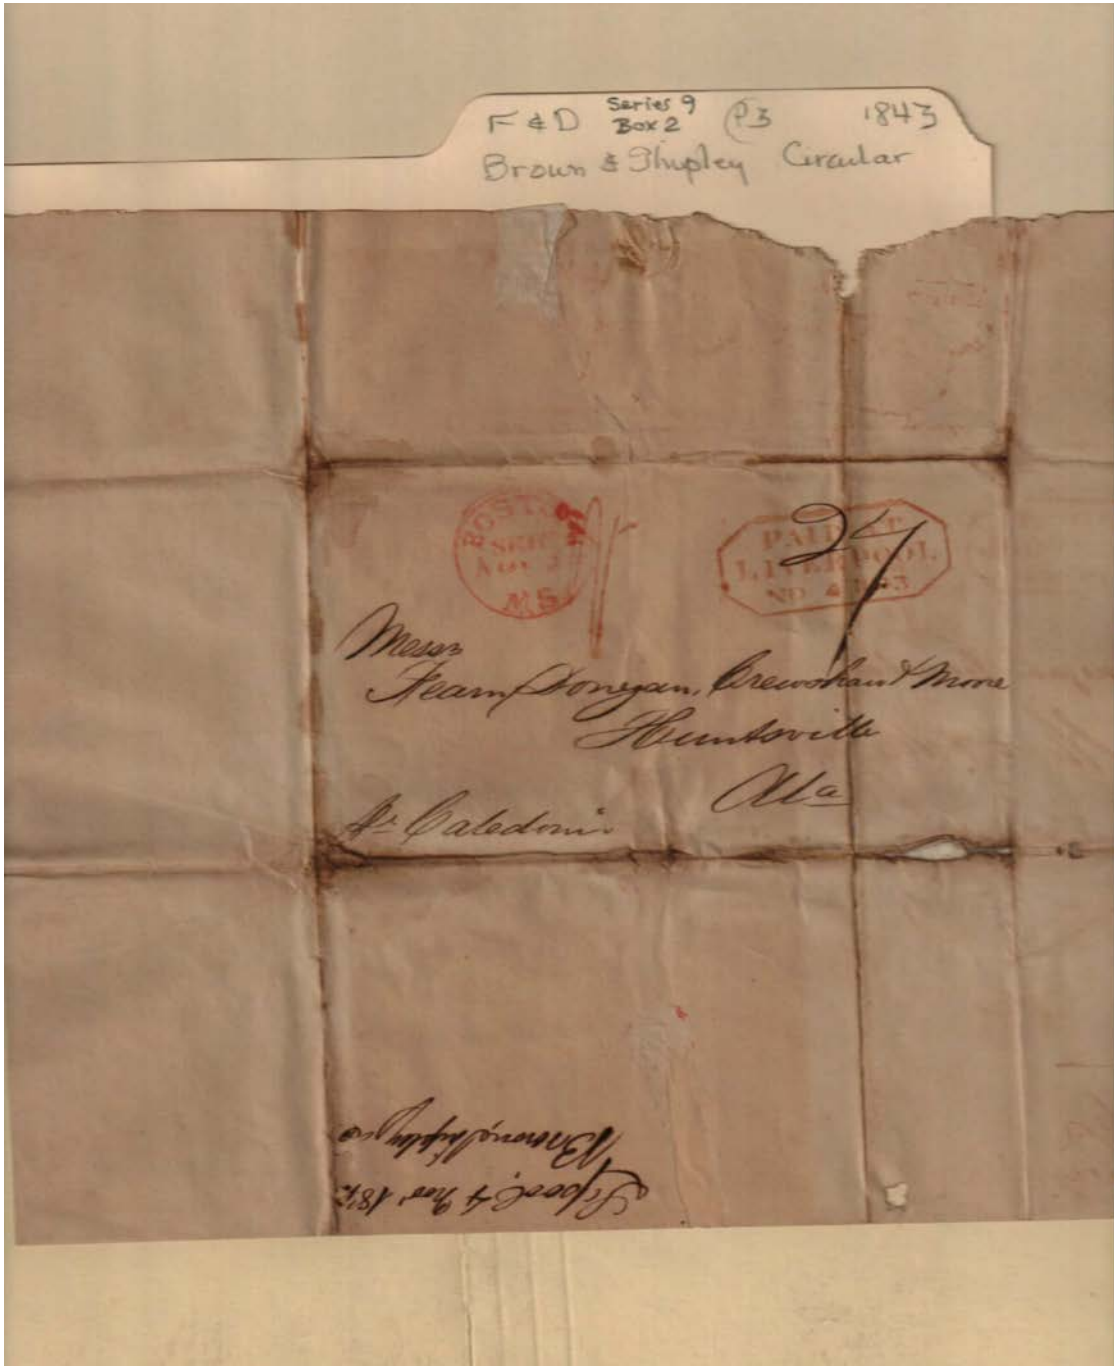 F & D Series 9 Box 2 P3 1843
Brown & Shipley Circular
BOSTON
SHIP
NOV 2
MS
27
PAID AT
LIVERPOOL
NO 4 1843
Messrs
Fearn Donegan, Crewshaw & Moore
Huntsville
Ala
Pr Caledonia
L'pool, 4 Nov 184
Brown, Shipley & Co